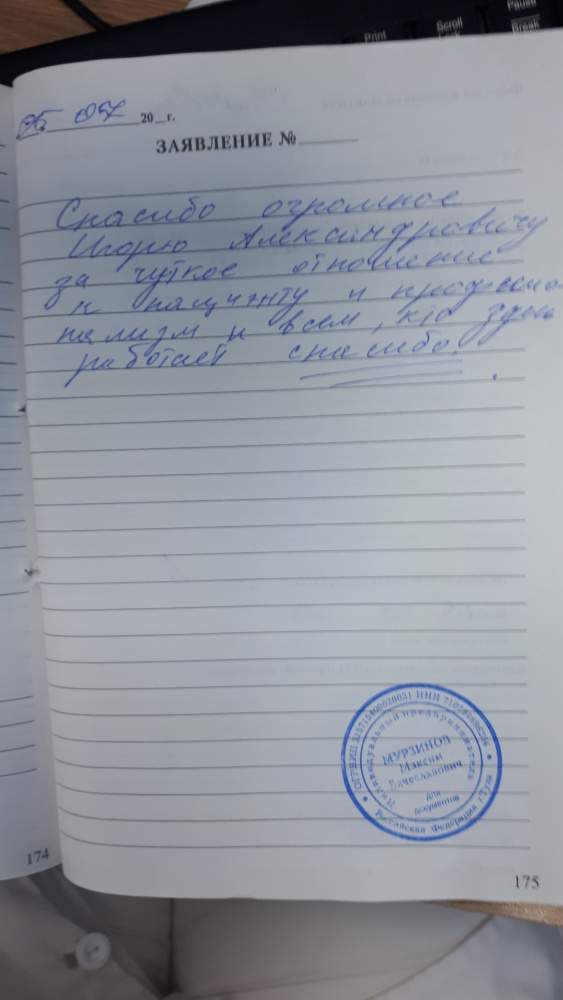 Pause
Break
Scroll
Print
07 20 г.
ЗАЯВЛЕНИЕ №
Спасибо огромное
Игорю Александровичу
за чуткое отношение
к пациенту и професио
нализм и всем, кто здесь
работает спасибо.
Индивидуальный предприниматель
МУРЗИНОВ
Максим
Вячеславович
для
документов
Российская Федерация г.Тула
174
175